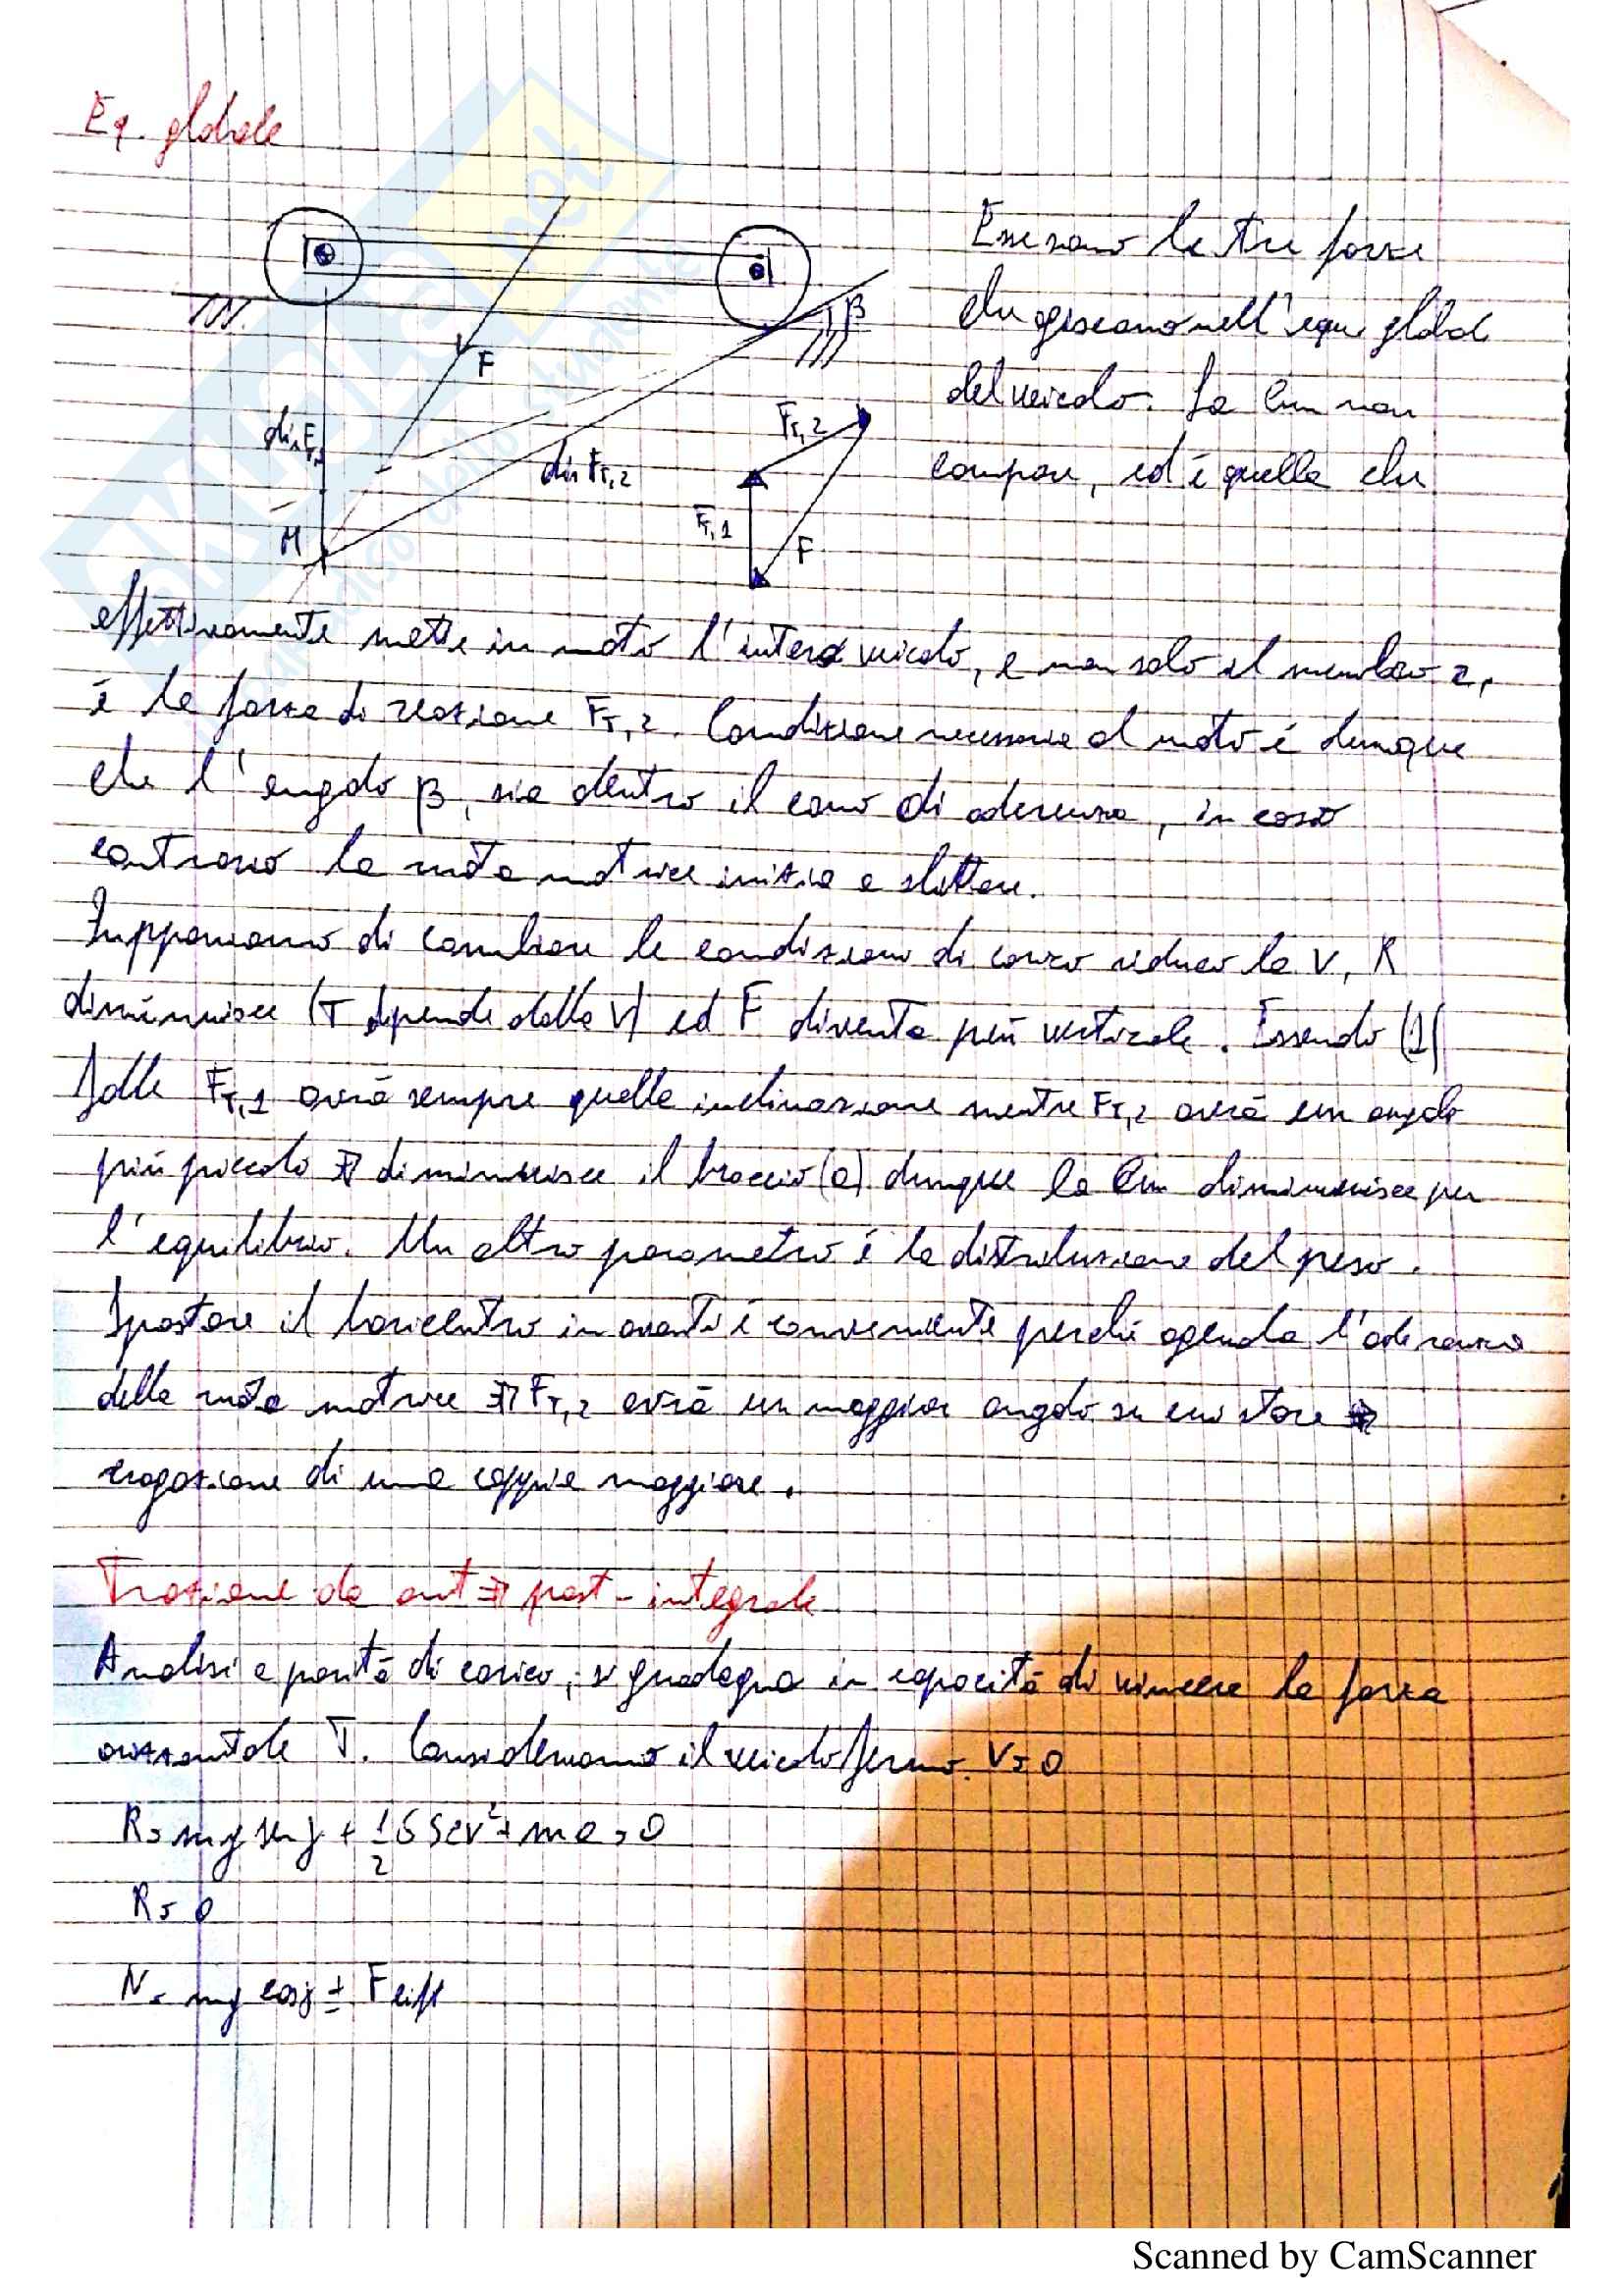 Eq. globale
Esse sono le tre forze
che agiscono nell'equi global
del veicolo. La Cm non
β
F
dir FT,1
dir FT,2
FT,2
compare, ed è quella che
FT,1
F
M
effettivamente mette in moto l'intero veicolo, e non solo il membro 2,
è la forza di reazione FT,2. Condizione necessaria al moto è dunque
che l'angolo β, sia dentro il cono di aderenza, in caso
contrario la ruota motrice inizia a slittare.
Supponiamo di cambiare le condizioni di carico riduco la V, R
diminuisce (T dipende dalla V) ed F diventa più verticale. Essendo (1)
folle FT,1 avrà sempre quella inclinazione mentre FT,2 avrà un angolo
più piccolo ⇒ diminuisce il braccio (a) dunque la Cm diminuisce per
l'equilibrio. Un altro parametro è la distribuzione del peso.
Spostare il baricentro in avanti è conveniente perché agevola l'aderenza
della ruota motrice ⇒ FT,2 avrà un maggior angolo su cui stare ⇒
erogazione di una coppia maggiore.
Trazione da ant ⇒ post - integrale
Analisi a parità di carico, si guadagna in capacità di vincere la forza
orizzontale T. Consideriamo il veicolo fermo. V=0
R= mg sen γ + 1/2 δ S c v² + m a = 0
R= 0
N= mg cos γ ± F lift
SKUOLA.net
paradiso dello studente
Scanned by CamScanner